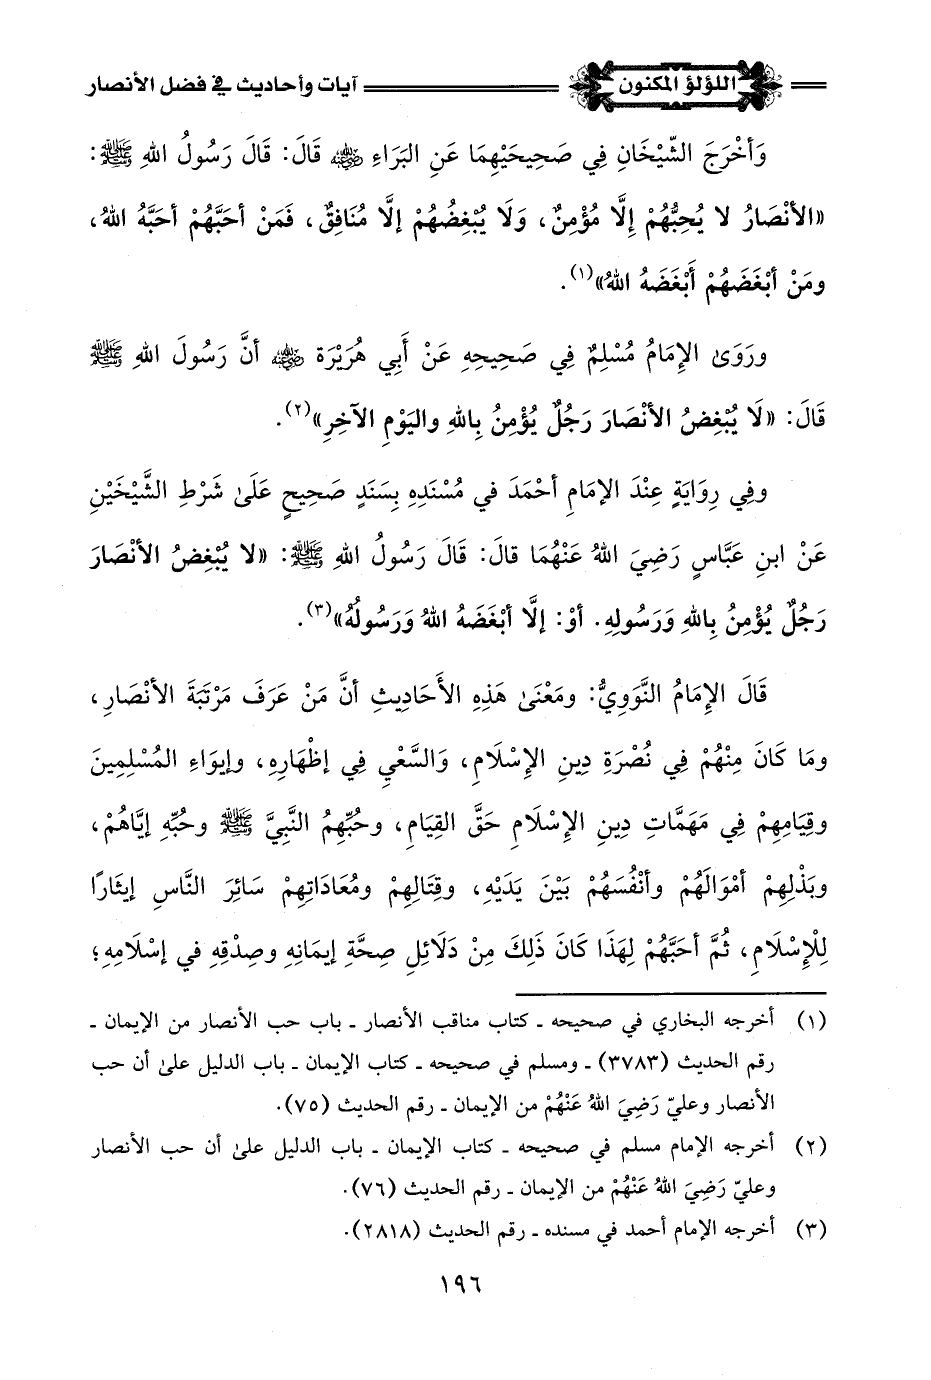 اللؤلؤ المكنون آيات وأحاديث في فضل الأنصار
وَأخْرَجَ الشَّيْخَانِ فِي صَحِيحَيْهِمَا عَنِ البَرَاءِ رضي الله عنه قَالَ: قَالَ رَسُولُ اللهِ ﷺ:
«الأنْصَارُ لا يُحِبُّهُمْ إِلَّا مُؤْمِنٌ، وَلَا يُبْغِضُهُمْ إلَّا مُنَافِقٌ، فَمَنْ أحَبَّهُمْ أحَبَّهُ اللهُ،
ومَنْ أبْغَضَهُمْ أَبْغَضَهُ اللهُ»(١).
ورَوَىٰ الإمَامُ مُسْلِمٌ فِي صَحِيحِهِ عَنْ أَبِي هُرَيْرَةَ رضي الله عنه أنَّ رَسُولَ اللهِ ﷺ
قَالَ: «لَا يُبْغِضُ الأنْصَارَ رَجُلٌ يُؤْمِنُ بِاللهِ واليَوْمِ الآخِرِ»(٢).
وفِي رِوَايَةٍ عِنْدَ الإمَامِ أحْمَدَ في مُسْنَدِهِ بِسَنَدٍ صَحِيحٍ عَلَىٰ شَرْطِ الشَّيْخَيْنِ
عَنْ ابنِ عَبَّاسٍ رَضِيَ اللهُ عَنْهُمَا قالَ: قَالَ رَسُولُ اللهِ ﷺ: «لا يُبْغِضُ الأنْصَارَ
رَجُلٌ يُؤْمِنُ بِاللهِ وَرَسُولِهِ. أوْ: إلَّا أبْغَضَهُ اللهُ وَرَسُولُهُ»(٣).
قَالَ الإمَامُ النَّوَوِيُّ: ومَعْنَىٰ هَذِهِ الأَحَادِيثِ أنَّ مَنْ عَرَفَ مَرْتَبَةَ الأنْصَارِ،
ومَا كَانَ مِنْهُمْ فِي نُصْرَةِ دِينِ الإسْلَامِ، وَالسَّعْيِ فِي إظْهَارِهِ، وإيوَاءِ المُسْلِمِينَ
وقِيَامِهِمْ فِي مَهَمَّاتِ دِينِ الإسْلَامِ حَقَّ القِيَامِ، وحُبِّهِمُ النَّبِيَّ ﷺ وحُبِّهِ إيَّاهُمْ،
وبَذْلِهِمْ أمْوَالَهُمْ وأنْفُسَهُمْ بَيْنَ يَدَيْهِ، وقِتَالِهِمْ ومُعَادَاتِهِمْ سَائِرَ النَّاسِ إيثَارًا
لِلْإِسْلَامِ، ثُمَّ أحَبَّهُمْ لِهَذَا كَانَ ذَلِكَ مِنْ دَلَائِلِ صِحَّةِ إيمَانِهِ وصِدْقِهِ في إسْلَامِهِ؛
(١) أخرجه البخاري في صحيحه ـ كتاب مناقب الأنصار ـ باب حب الأنصار من الإيمان ـ
رقم الحديث (٣٧٨٣) ـ ومسلم في صحيحه ـ كتاب الإيمان ـ باب الدليل علىٰ أن حب
الأنصار وعليّ رَضِيَ اللهُ عَنْهُمْ من الإيمان ـ رقم الحديث (٧٥).
(٢) أخرجه الإمام مسلم في صحيحه ـ كتاب الإيمان ـ باب الدليل علىٰ أن حب الأنصار
وعليّ رَضِيَ اللهُ عَنْهُمْ من الإيمان ـ رقم الحديث (٧٦).
(٣) أخرجه الإمام أحمد في مسنده ـ رقم الحديث (٢٨١٨).
١٩٦